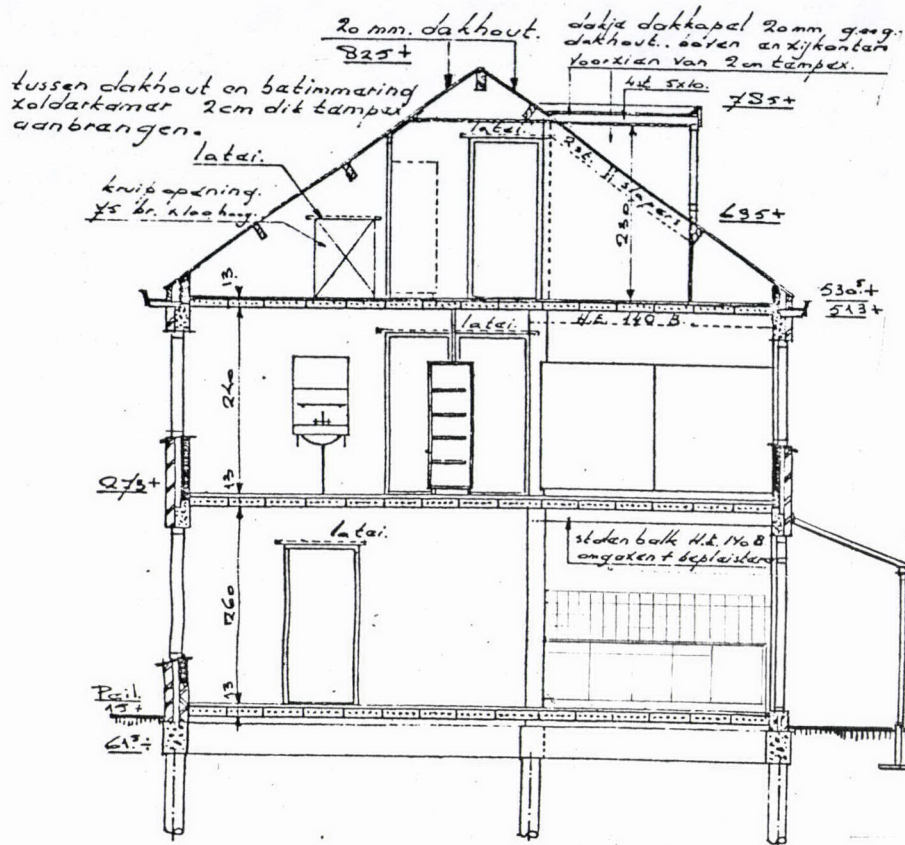 20 mm. dakhout.
825+
dakje dakkapel 20mm. geeg.
dakhout.. boven en zijkanten
voorzien van 2cm tempex.
hst 5x10.
785+
tussen dakhout en betimmering
zolderkamer 2cm dik tempex
aanbrengen.
latei.
latei.
kruipopening.
75 br. x 100 hoog.
2 st. slapers
230
695+
13
530⁵+
513+
latei.
H.E. 140 B.
240
273+
13
latei.
stalen balk H.E. 140B
omgazen + bepleisteren
260
Peil.
15+
13
61⁵÷